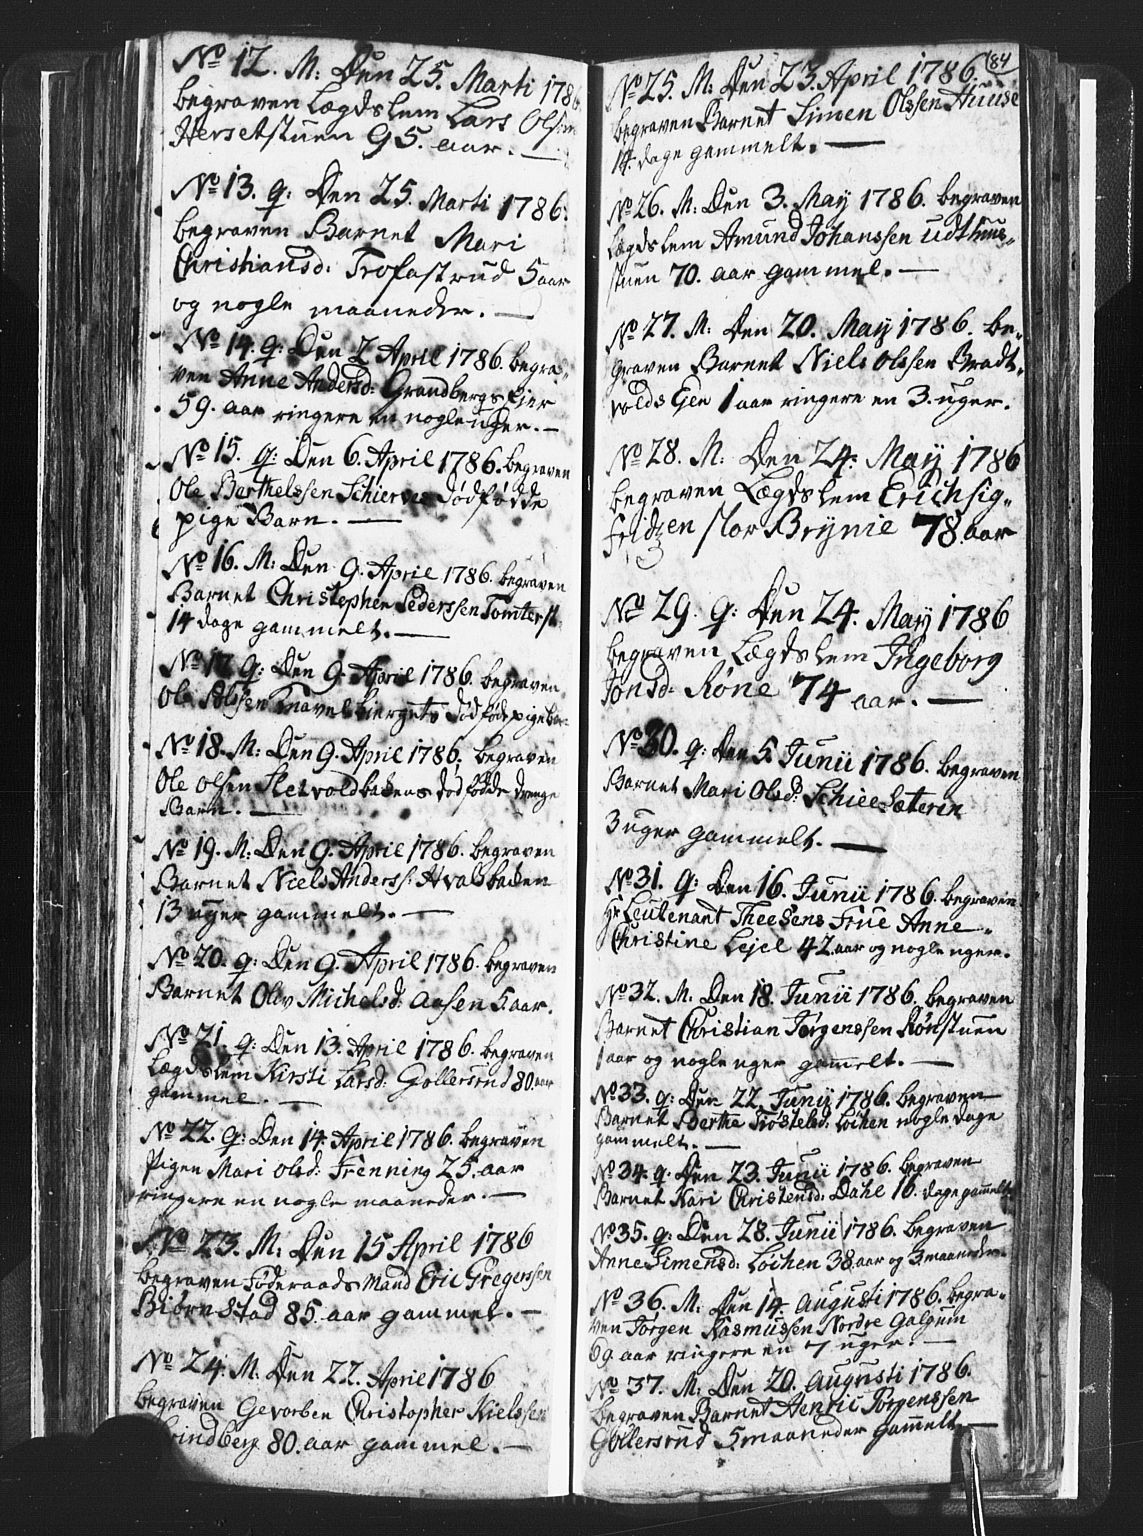 No 12. M: Den 25. Marti 1786
begraven Lægdslem Lars Olsen
Hersetstuen 95. aar. —
No 13. q: Den 25. Marti 1786.
begraven Barnet Mari
Christiansd: Trofastrud 5 aar
og nogle maaneder. —
No 14. q: Den 2 April 1786. begra-
ven Anne Andersd: Grandbergs Eier
59. aar ringere en nogle uger. —
No 15. q: Den 6. April 1786. begraven
Ole Berthelssen Schierves dødfødde
pige Barn. —
No 16. M: Den 9. April 1786. begraven
Barnet Christephen Pederssen Tomterst:
14 dage gammelt. —
No 17. q: Den 9. April 1786. begraven
Ole Olssen Knavelbiergets dødføde pige bar
No 18. M: Den 9. April 1786. begraven
Ole Olsen Sletvoldbakens dødfødde drenge
Barn. —
No 19. M: Den 9. April 1786. begraven
Barnet Niels Anderss: Hvalsbaken
13 uger gammelt. —
No 20. q: Den 9. April 1786. begraven
Barnet Oliv Michelsd: Aasen 5 aar.
No 21. q: Den 13. April 1786. begraven
Lægdslem Kirsti Larsd: Gollersrud 80 aar
gammel. —
No 22. q: Den 14. April 1786. begraven
Pigen Mari Olsd: Frenning 25. aar
ringere en nogle maaneder. —
No 23. M: Den 15 April 1786
begraven Føderaads Mand Eric Gregerssen
Biørnstad 85. aar gammel. —
No 24. M. Den 22. April 1786
begraven Gevorben Christopher Nielssen
Grindberg 80. aar gammel. —
84
No 25. M: Den 23. April 1786.
begraven Barnet Simen Olssen Huuse
14. dage gammelt. —
No 26. M: Den 3. May 1786. begraven
Lægdslem Amund Johanssen Udthuus-
stuen 70. aar gammel. —
No 27. M: Den 20. May 1786. be-
graven Barnet Niels Olssen Bradt-
volds Eien 1 aar ringere en 3. uger.
No 28. M. Den 24. May 1786
begraven Lægdslem Erich Sig-
fridzen stor Brynie 78. aar
No 29. q: Den 24. May 1786
begraven Lægdslem Ingeborg
Jonsd: Røne 74 aar. —
No 30. q: Den 5. Junii 1786. begraven
Barnet Mari Olsd: Schiee Sæteren
3 uger gammelt. —
No 31. q: Den 16. Junii 1786. begraven
Hr Leutenant Theesens Frue Anne
Christine Lejel 42. aar og nogle uger.
No 32. M. Den 18. Junii 1786. begraven
Barnet Christian Jørgenssen Rønstuen
1 aar og nogle uger gammelt. —
No 33. q: Den 22. Junij 1786. begraven
Barnet Berthe Trøstelsd: Løchen nogle dage
gammelt. —
No 34. q: Den 23. Junii 1786. begraven
Barnet Kari Christensd: Dahl 16. dage gammelt
No 35. q: Den 28. Junii 1786. begraven
Anne Simensd: Løchen 38. aar og 3. maaneder.
No 36. M: Den 14. Augusti 1786. begra-
ven Jørgen Rasmussen Nordre Galgum
69. aar ringere en 7 uger. —
No 37. M: Den 20. Augusti 1786.
begraven Barnet Henric Jørgenssen
Gollersrud 5 maaneder gammelt. —